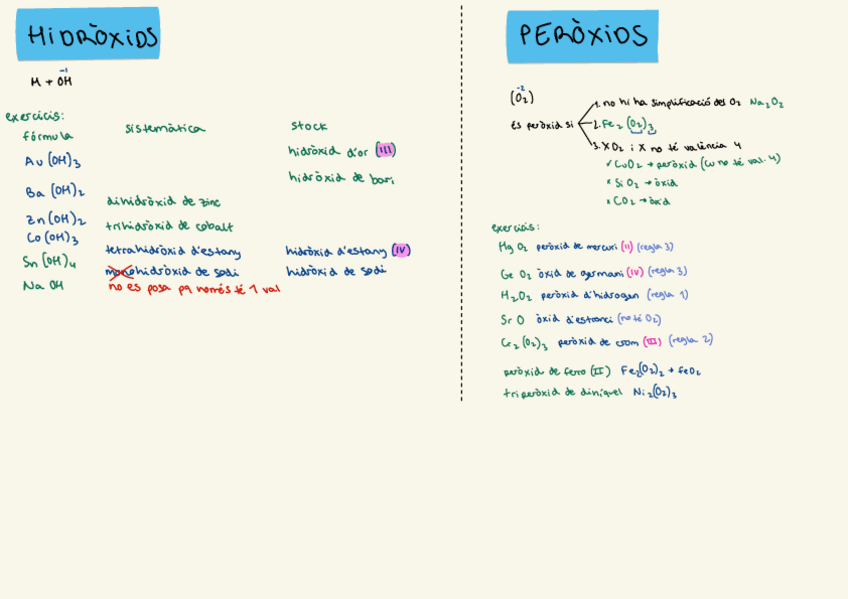 HIDRÒXIDS
-1
M + OH
exercicis:
fórmula sistemàtica stock
Au(OH)₃ hidròxid d'or (III)
Ba(OH)₂ hidròxid de bari
Zn(OH)₂ dihidròxid de zinc
Co(OH)₃ trihidròxid de cobalt
Sn(OH)₄ tetrahidròxid d'estany hidròxid d'estany (IV)
Na OH monohidròxid de sodi hidròxid de sodi
no es posa pq només té 1 val
PERÒXIDS
-2
(O₂)
És peròxid si
1. no hi ha simplificació del O₂ Na₂O₂
2. Fe₂(O₂)₃
3. XO₂ i X no té valència 4
✓ CuO₂ → peròxid (Cu no té val. 4)
× SiO₂ → òxid
× CO₂ → òxid
exercicis:
Hg O₂ peròxid de mercuri (II) (regla 3)
Ge O₂ òxid de germani (IV) (regla 3)
H₂O₂ peròxid d'hidrogen (regla 1)
Sr O òxid d'estronci (no té O₂)
Cr₂(O₂)₃ peròxid de crom (III) (regla 2)
peròxid de ferro (II) Fe₂(O₂)₂ → feO₂
triperòxid de diníquel Ni₂(O₂)₃